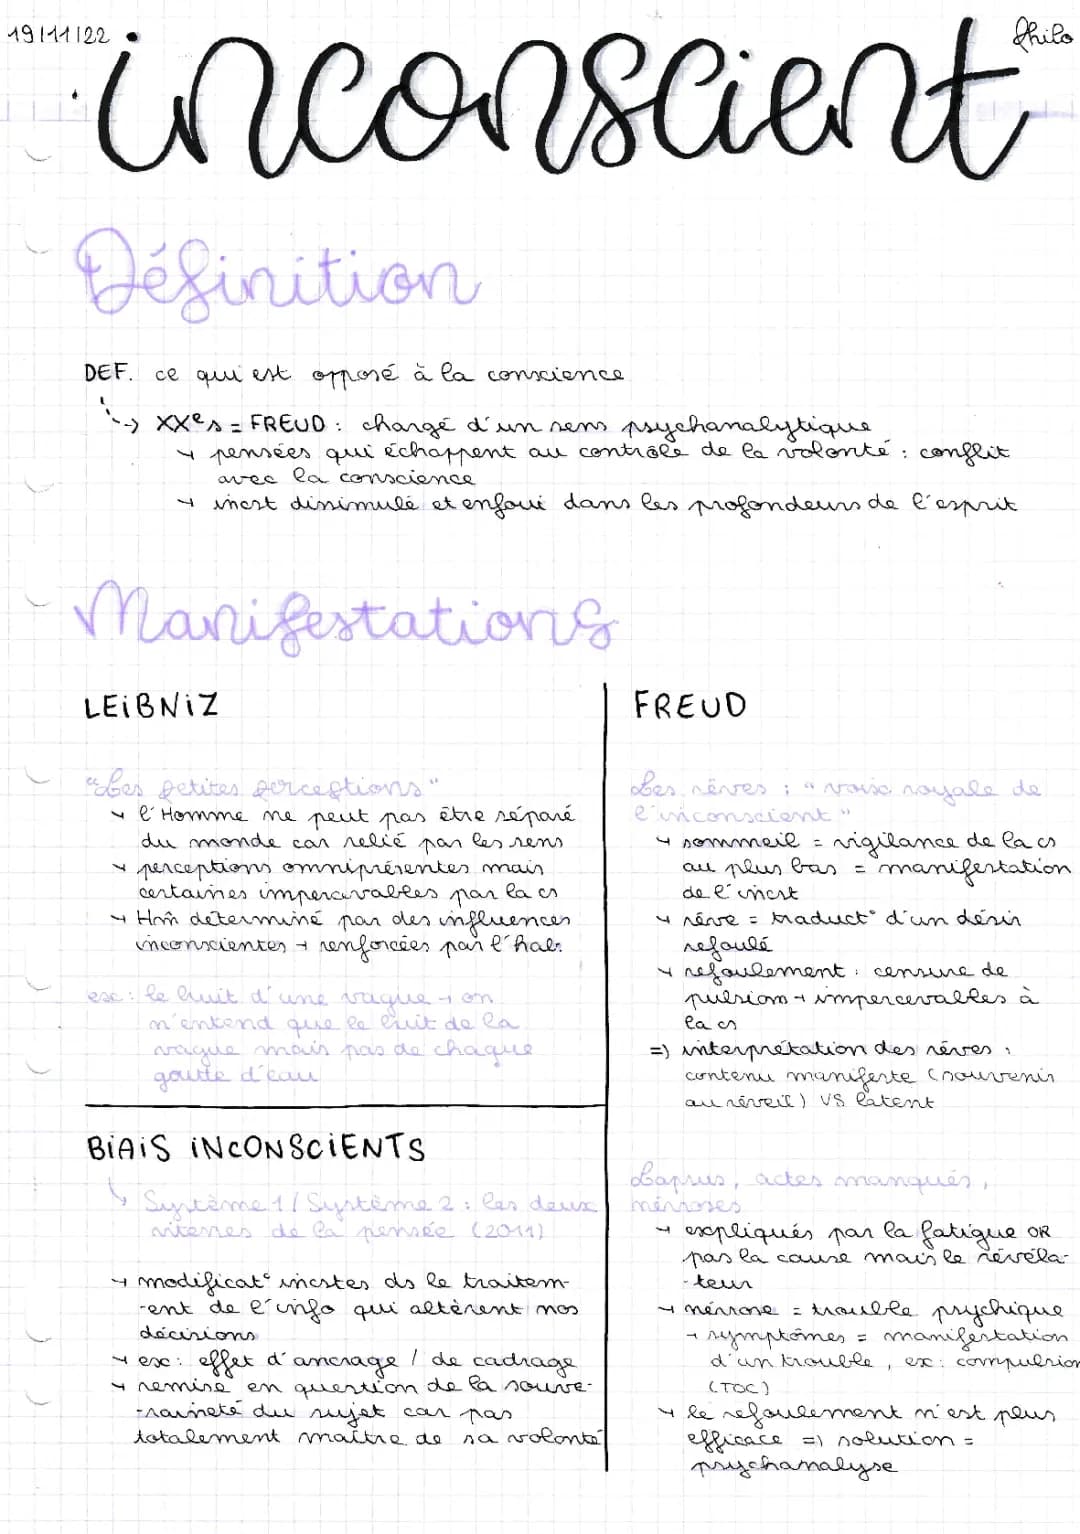 19/11/22
Philo
inconscient
Définition
DEF. ce qui est opposé à la conscience
XXe s = FREUD : chargé d'un sens psychanalytique
→ pensées qui échappent au contrôle de la volonté : conflit
avec la conscience
→ incst dissimulé et enfoui dans les profondeurs de l'esprit
Manifestations
LEIBNIZ
"Les petites perceptions"
→ l'Homme ne peut pas être séparé
du monde car relié par les sens
→ perceptions omniprésentes mais
certaines impercevables par la cs
→ Hm déterminé par des influences
inconscientes → renforcées par l'hab.
ex : le bruit d'une vague → on
n'entend que le bruit de la
vague mais pas de chaque
goutte d'eau
BIAIS INCONSCIENTS
Système 1 / Système 2 : les deux
vitesses de la pensée (2011)
→ modificat° incstes ds le traitem-
-ent de l'info qui altèrent nos
décisions
→ ex : effet d'ancrage / de cadrage
→ remise en question de la souve-
-raineté du sujet car pas
totalement maître de sa volonté
FREUD
Les rêves : "voie royale de
l'inconscient"
→ sommeil = vigilance de la cs
au plus bas = manifestation
de l'incst
→ rêve = traduct° d'un désir
refoulé
→ refoulement : censure de
pulsions → impercevables à
la cs
=> interprétation des rêves :
contenu manifeste (souvenir
au réveil) VS latent
Lapsus, actes manqués,
névroses
→ expliqués par la fatigue OR
pas la cause mais le révéla-
-teur
→ névrose = trouble psychique
→ symptômes = manifestation
d'un trouble, ex : compulsion
(TOC)
→ le refoulement n'est plus
efficace => solution =
psychanalyse